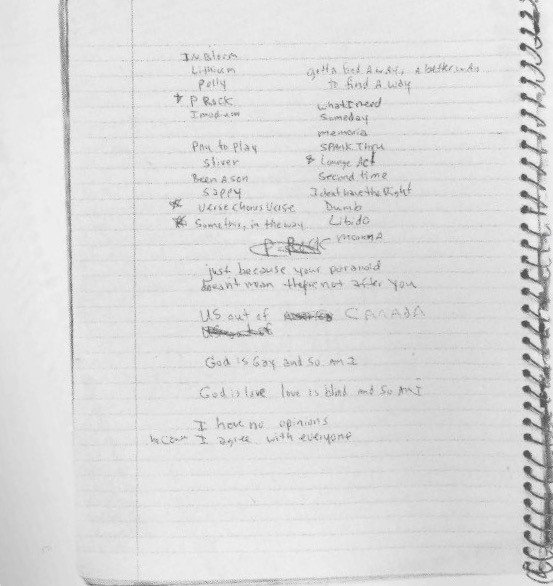 In Bloom
Lithium
Polly
P Rock
Imodium
Pay to Play
Sliver
Been A son
Sappy
Verse Chorus Verse
Something in the way
gotta find A way, a better way
to find A way
what I need
Someday
memoria
SPANK Thru
Lounge Act
Second time
I dont have the Right
Dumb
Libido
moruna
P Rock
just because your paranoid
doesnt mean theyre not after you
US out of CANADA
US out of
God is Gay and so Am I
God is love love is blind and so Am I
I have no opinions
I agree with everyone